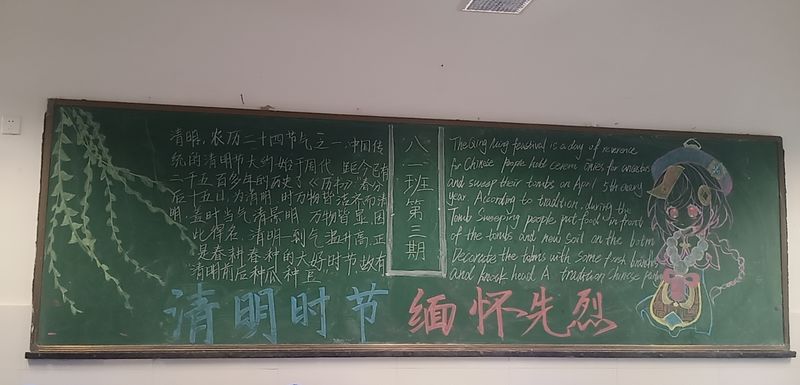 清明，农历二十四节气之一，中国传
统的清明节大约始于周代，距今已有
二千五百多年的历史了《历书》：春分
后十五日，为清明，时万物皆洁齐而清
明，盖时当气清景明，万物皆显，因
此得名，清明一到气温升高，正
是春耕春种的大好时节，故有
清明前后种瓜种豆
八一班第三期
The Qing Ming feastival is a day of reverence
for Chinese people hold cerem onies for ancestors
and sweep their tombs on April 5th every
year According to tradition, during the
Tomb Sweeping people put food in front
of the tombs and new soil on the
Decorate the tombs with some fresh
and head A tradition Chinese
清明时节 缅怀先烈